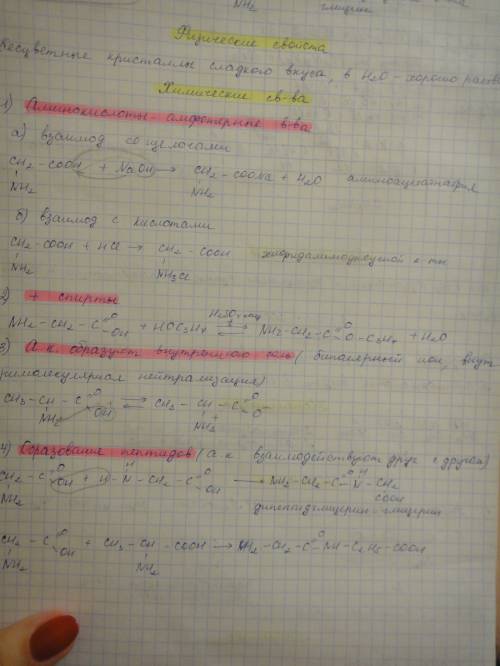 NH2 глицин
Физические свойства
Бесцветные кристаллы сладкого вкуса, в H2O - хорошо раство
Химические св-ва
1) Аминокислоты - амфотерные в-ва
а) взаимод со щелочами
CH2 - COOH + NaOH → CH2 - COONa + H2O аминоацетатнатрия
NH2 NH2
б) взаимод с кислотами
CH2 - COOH + HCl → CH2 - COOH хлоридаминоуксусной к-ты
NH2 NH3Cl
2) + спирты
NH2 - CH2 - C O OH + HOC3H7 ⇄ H2SO4 NH2 - CH2 - C O O - C3H7 + H2O
3) А.к. образуют внутреннюю соль (биполярный ион, внут
римолекулярная нейтрализация)
CH3 - CH - C O OH ⇄ CH3 - CH - C O O-
NH2 NH3+
4) Образование пептидов (а.к взаимодействуют друг с другом)
CH2 - C O OH + H - N H - CH2 - C O OH → NH2 - CH2 - C O - N H - CH2
NH2 COOH
дипептидглицерин-глицерин
CH2 - C O OH + CH3 - CH - COOH → NH2 - CH2 - C O - NH - C2H4 - COOH
NH2 NH2